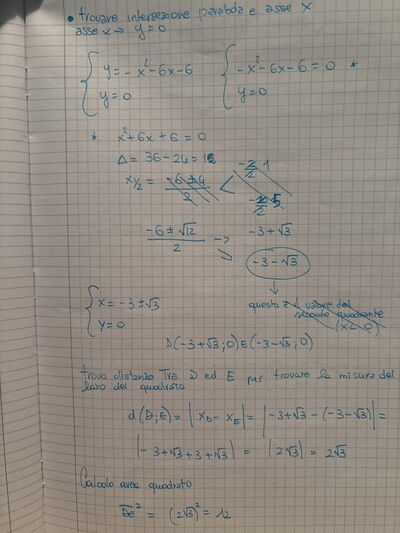 • trovare intersezione parabola e asse x
asse x → y = 0
{ y = -x² - 6x - 6
y = 0
{ -x² - 6x - 6 = 0 *
y = 0
* x² + 6x + 6 = 0
Δ = 36 - 24 = 12
x½ = -6 ± 4 / 2
-6 ± √12 / 2 → -3 + √3
-3 - √3
{ x = -3 ± √3
y = 0
questo è il valore del
secondo quadrante
(x < 0)
D(-3+√3; 0) E(-3-√3; 0)
trovo distanza Tra D ed E per trovare la misura del
lato del quadrato
d(D;E) = |x_D - x_E| = |-3+√3 - (-3-√3)| =
|-3 + √3 + 3 + √3| = |2√3| = 2√3
Calcolo area quadrato
DE² = (2√3)² = 12